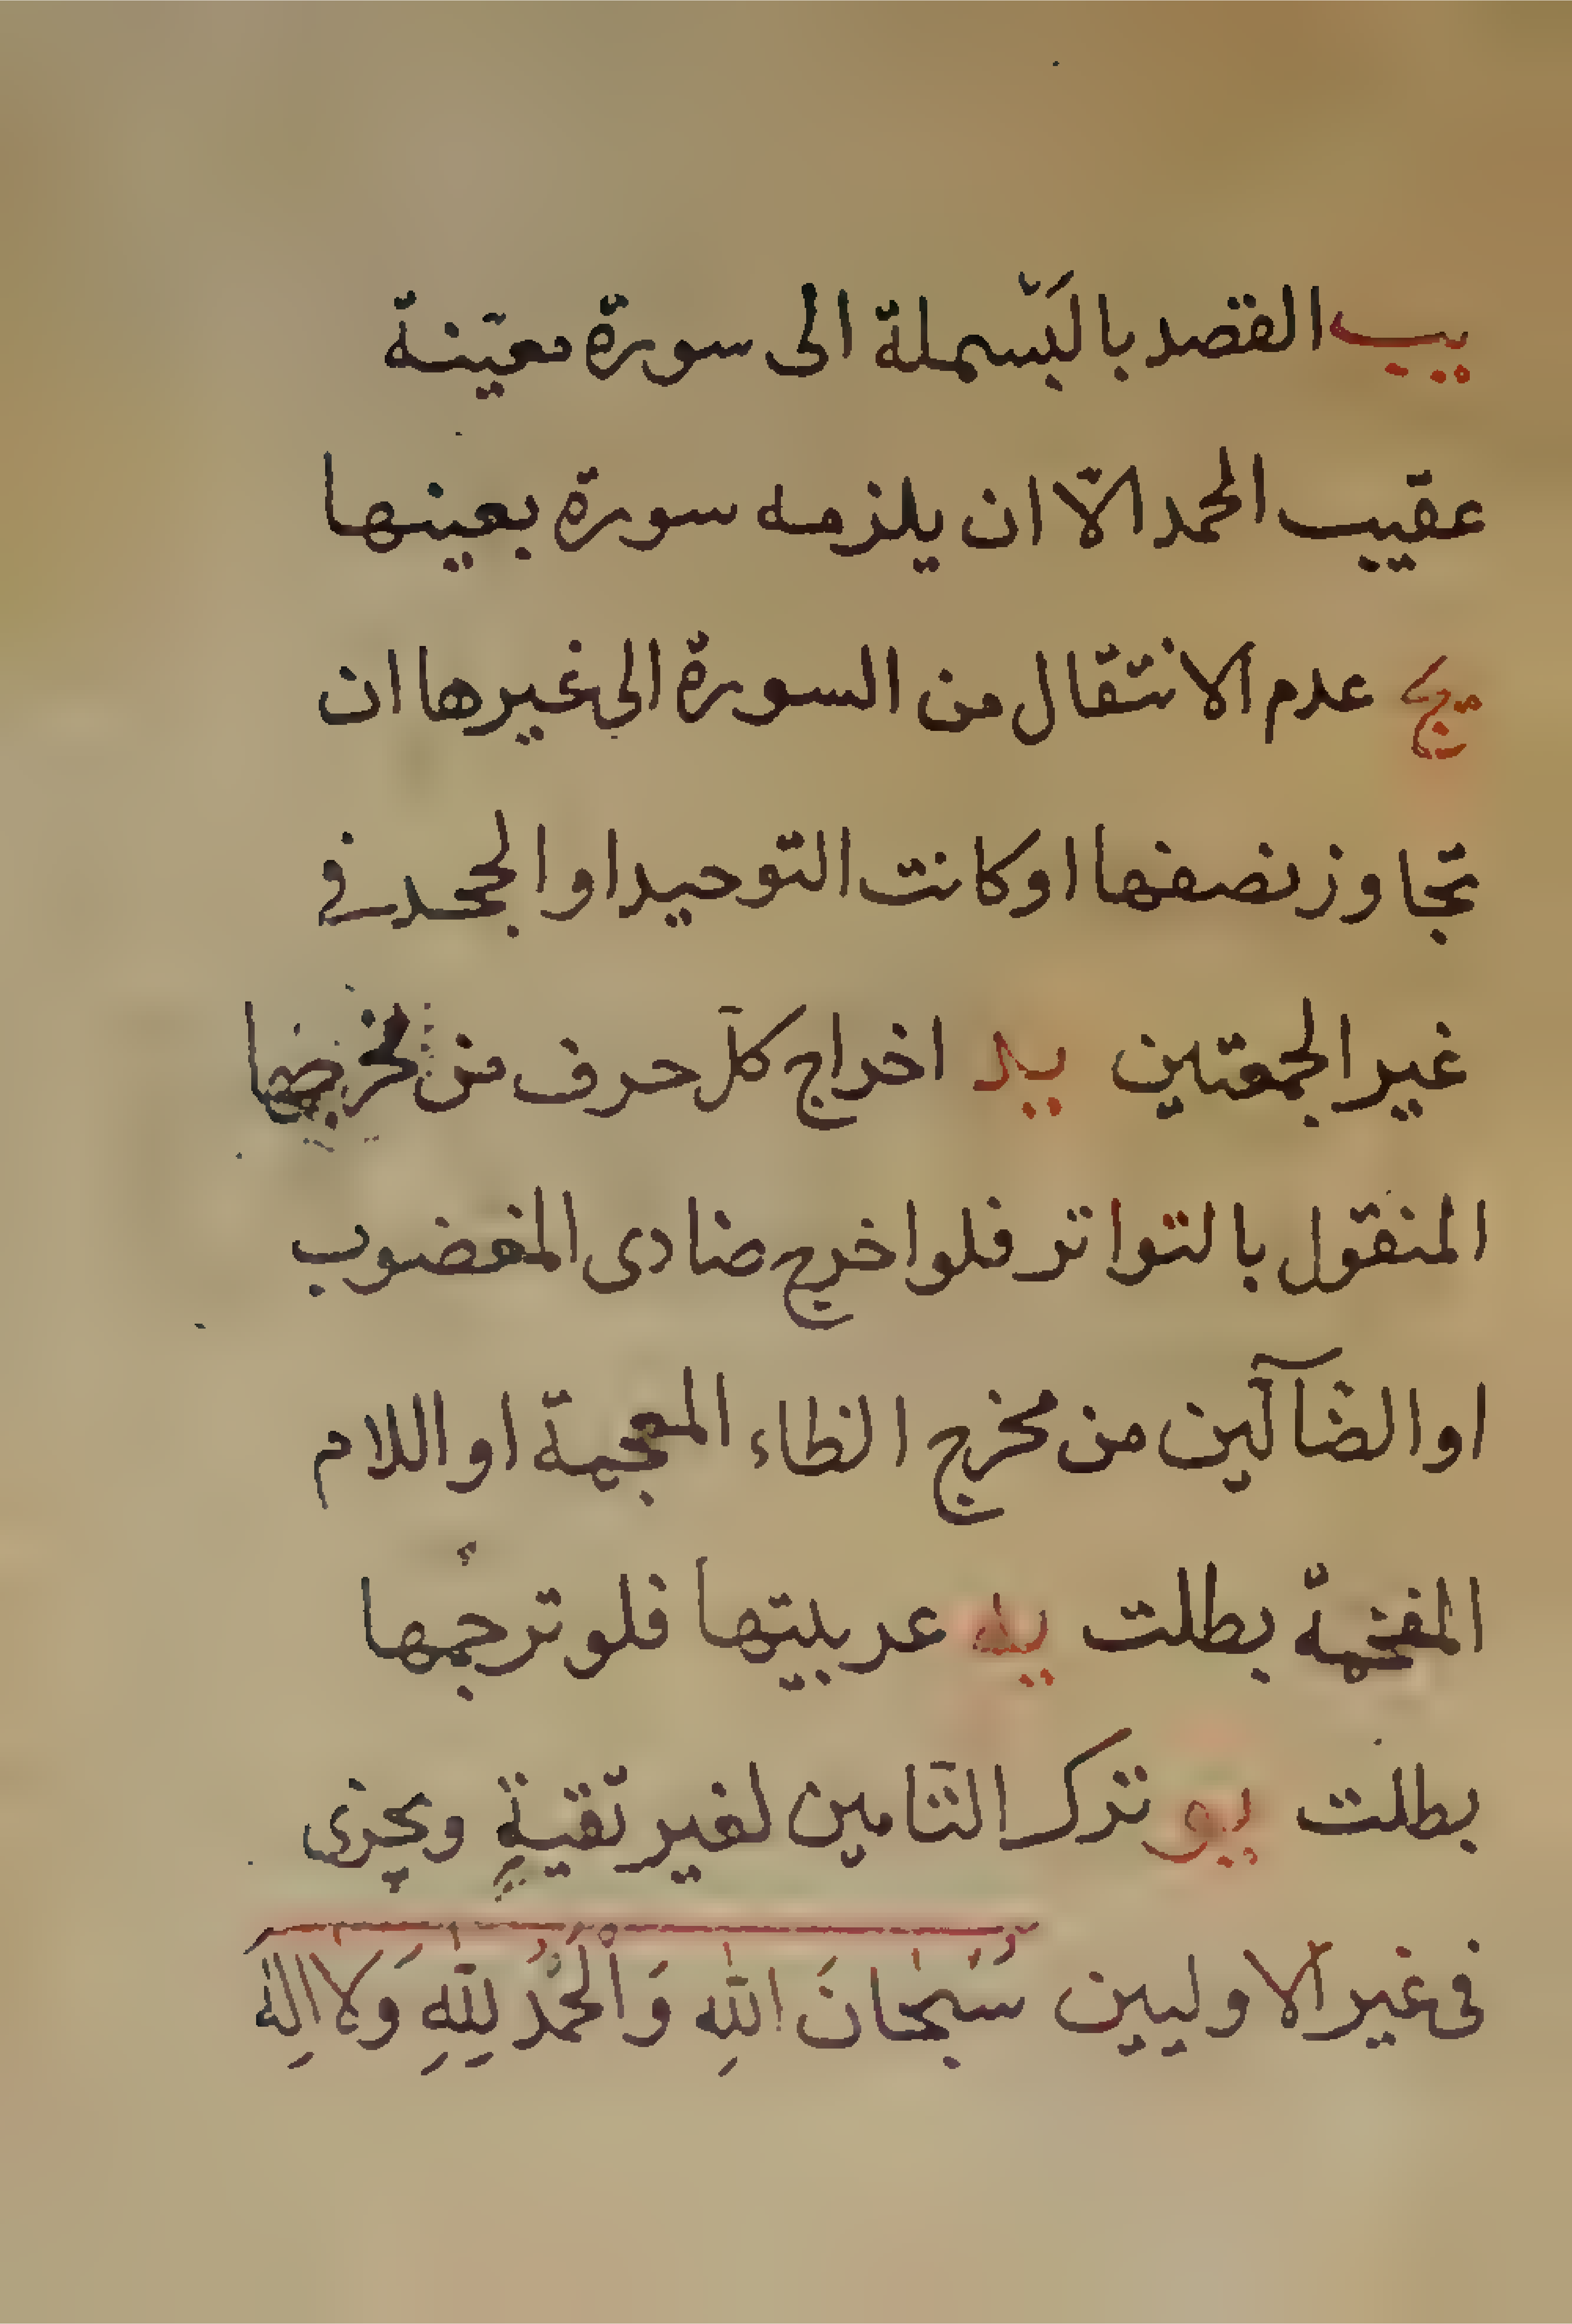 يب القصد بالبَسّملة الى سورة معيّنة
عقيب الحمد الّا ان يلزمه سورة بعينها
يج عدم الانتقال من السورة الى غيرها ان
تجاوز نصفها او كانت التوحيد او الجحد في
غير الجمعتين يد اخراج كلّ حرف من مخرجها
المنقول بالتواتر فلو اخرج ضادى المغضوب
او الضآلّين من مخرج الظاء المعجمة او اللام
المفخمة بطلت يه عربيتها فلو ترجمها
بطلت يو ترك التّامين لغير تقيةٍ ويجزى
فى غير الاوليين سُبْحانَ اللهِ وَالْحَمْدُ لِلّهِ وَلا اِلهَ